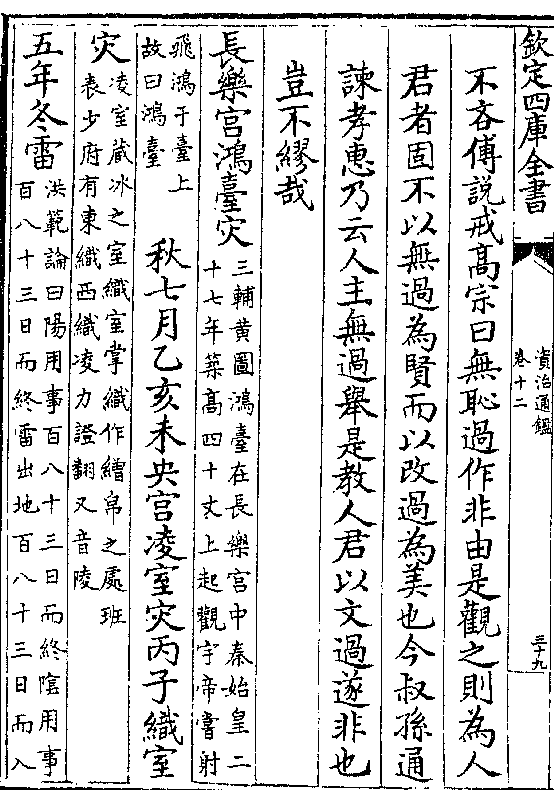 欽定四庫全書
資治通鑑
卷十二
三十九
不吝傅說戒高宗曰無恥過作非由是觀之則為人
君者固不以無過為賢而以改過為美也今叔孫通
諫孝惠乃云人主無過舉是教人君以文過遂非也
豈不繆哉
長樂宮鴻臺灾
三輔黄圖鴻臺在長樂宮中秦始皇二
十七年築高四十丈上起觀宇帝嘗射
飛鴻于臺上
故曰鴻臺
秋七月乙亥未央宮凌室灾丙子織室
灾
凌室藏冰之室織室掌織作繒帛之處班
表少府有東織西織凌力證翻又音陵
五年冬雷
洪範論曰陽用事百八十三日而終隂用事
百八十三日而終雷出地百八十三日而入